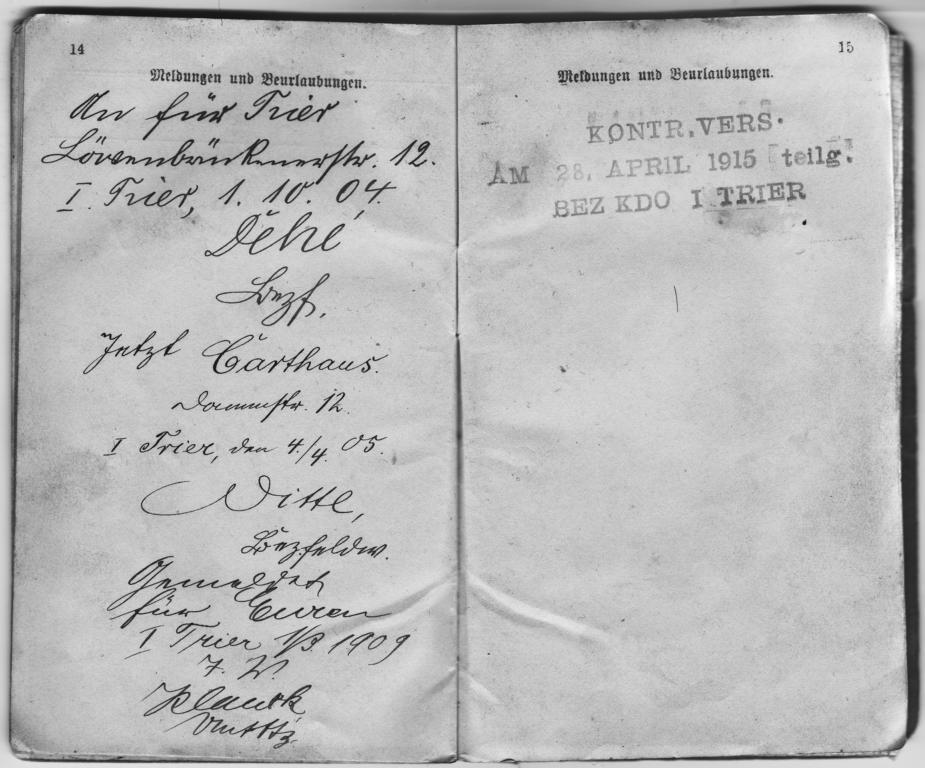 14
Meldungen und Beurlaubungen.
An für Trier
Löwenbrückenerstr. 12.
I. Trier, 1. 10. 04.
Dehé
Bezf.
Jetzt Carthaus.
Dammstr. 12.
I Trier, den 4./4. 05.
Witte,
Bezfeldw.
Gemeldet
für Euren
I Trier 1/3. 1909
F. W.
15
Meldungen und Beurlaubungen.
KONTR.VERS.
AM 28. APRIL 1915 teilg.
BEZ KDO I TRIER